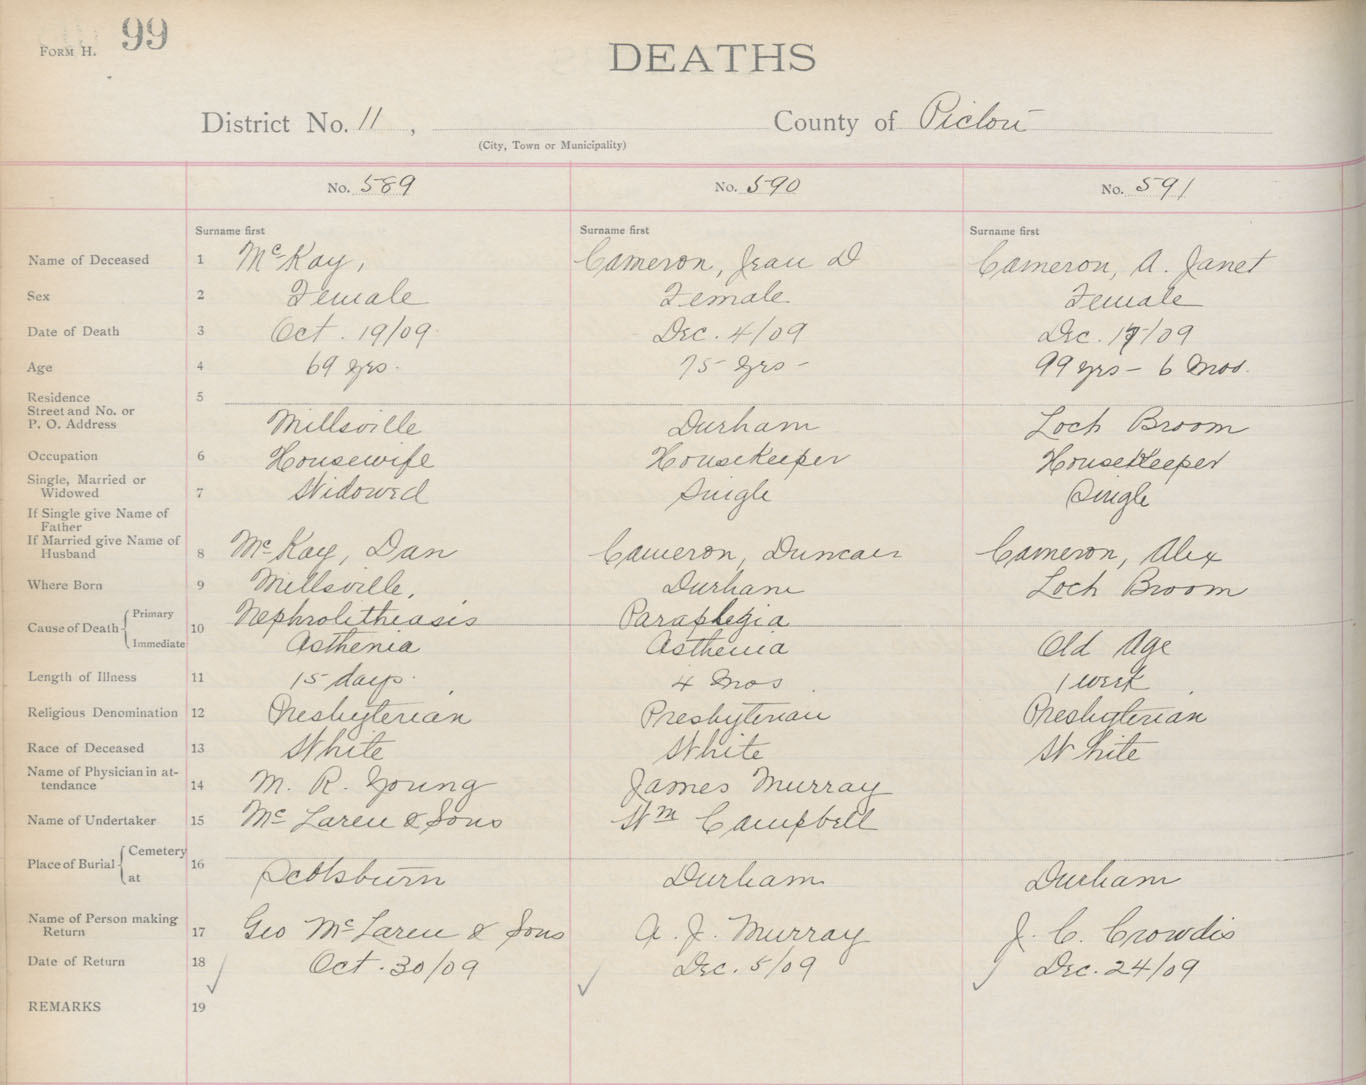 Form H. 99
DEATHS
District No. 11, County of Pictou
(City, Town or Municipality)
No. 589 No. 590 No. 591
Surname first Surname first Surname first
Name of Deceased 1 McKay, Cameron, Jean D Cameron, A. Janet
Sex 2 Female Female Female
Date of Death 3 Oct. 19/09 Dec. 4/09 Dec. 17/09
Age 4 69 yrs. 75 yrs - 99 yrs - 6 Mos.
Residence 5
Street and No. or
P. O. Address Millsville Durham Loch Broom
Occupation 6 Housewife Housekeeper Housekeeper
Single, Married or
Widowed 7 Widowed Single Single
If Single give Name of
Father
If Married give Name of
Husband 8 McKay, Dan Cameron, Duncan Cameron, Alex
Where Born 9 Millsville, Durham Loch Broom
Cause of Death { Primary Nephrolithiasis Paraplegia
10
Immediate Asthenia Asthenia Old Age
Length of Illness 11 15 days. 4 Mos. 1 week.
Religious Denomination 12 Presbyterian Presbyterian Presbyterian
Race of Deceased 13 White White White
Name of Physician in at-
tendance 14 M. R. Young James Murray
Name of Undertaker 15 McLaren & Sons Wm Campbell
Place of Burial { Cemetery 16
at Scotsburn Durham Durham
Name of Person making
Return 17 Geo McLaren & Sons A. J. Murray J. C. Crowdis
Date of Return 18 Oct. 30/09 Dec. 5/09 Dec. 24/09
REMARKS 19